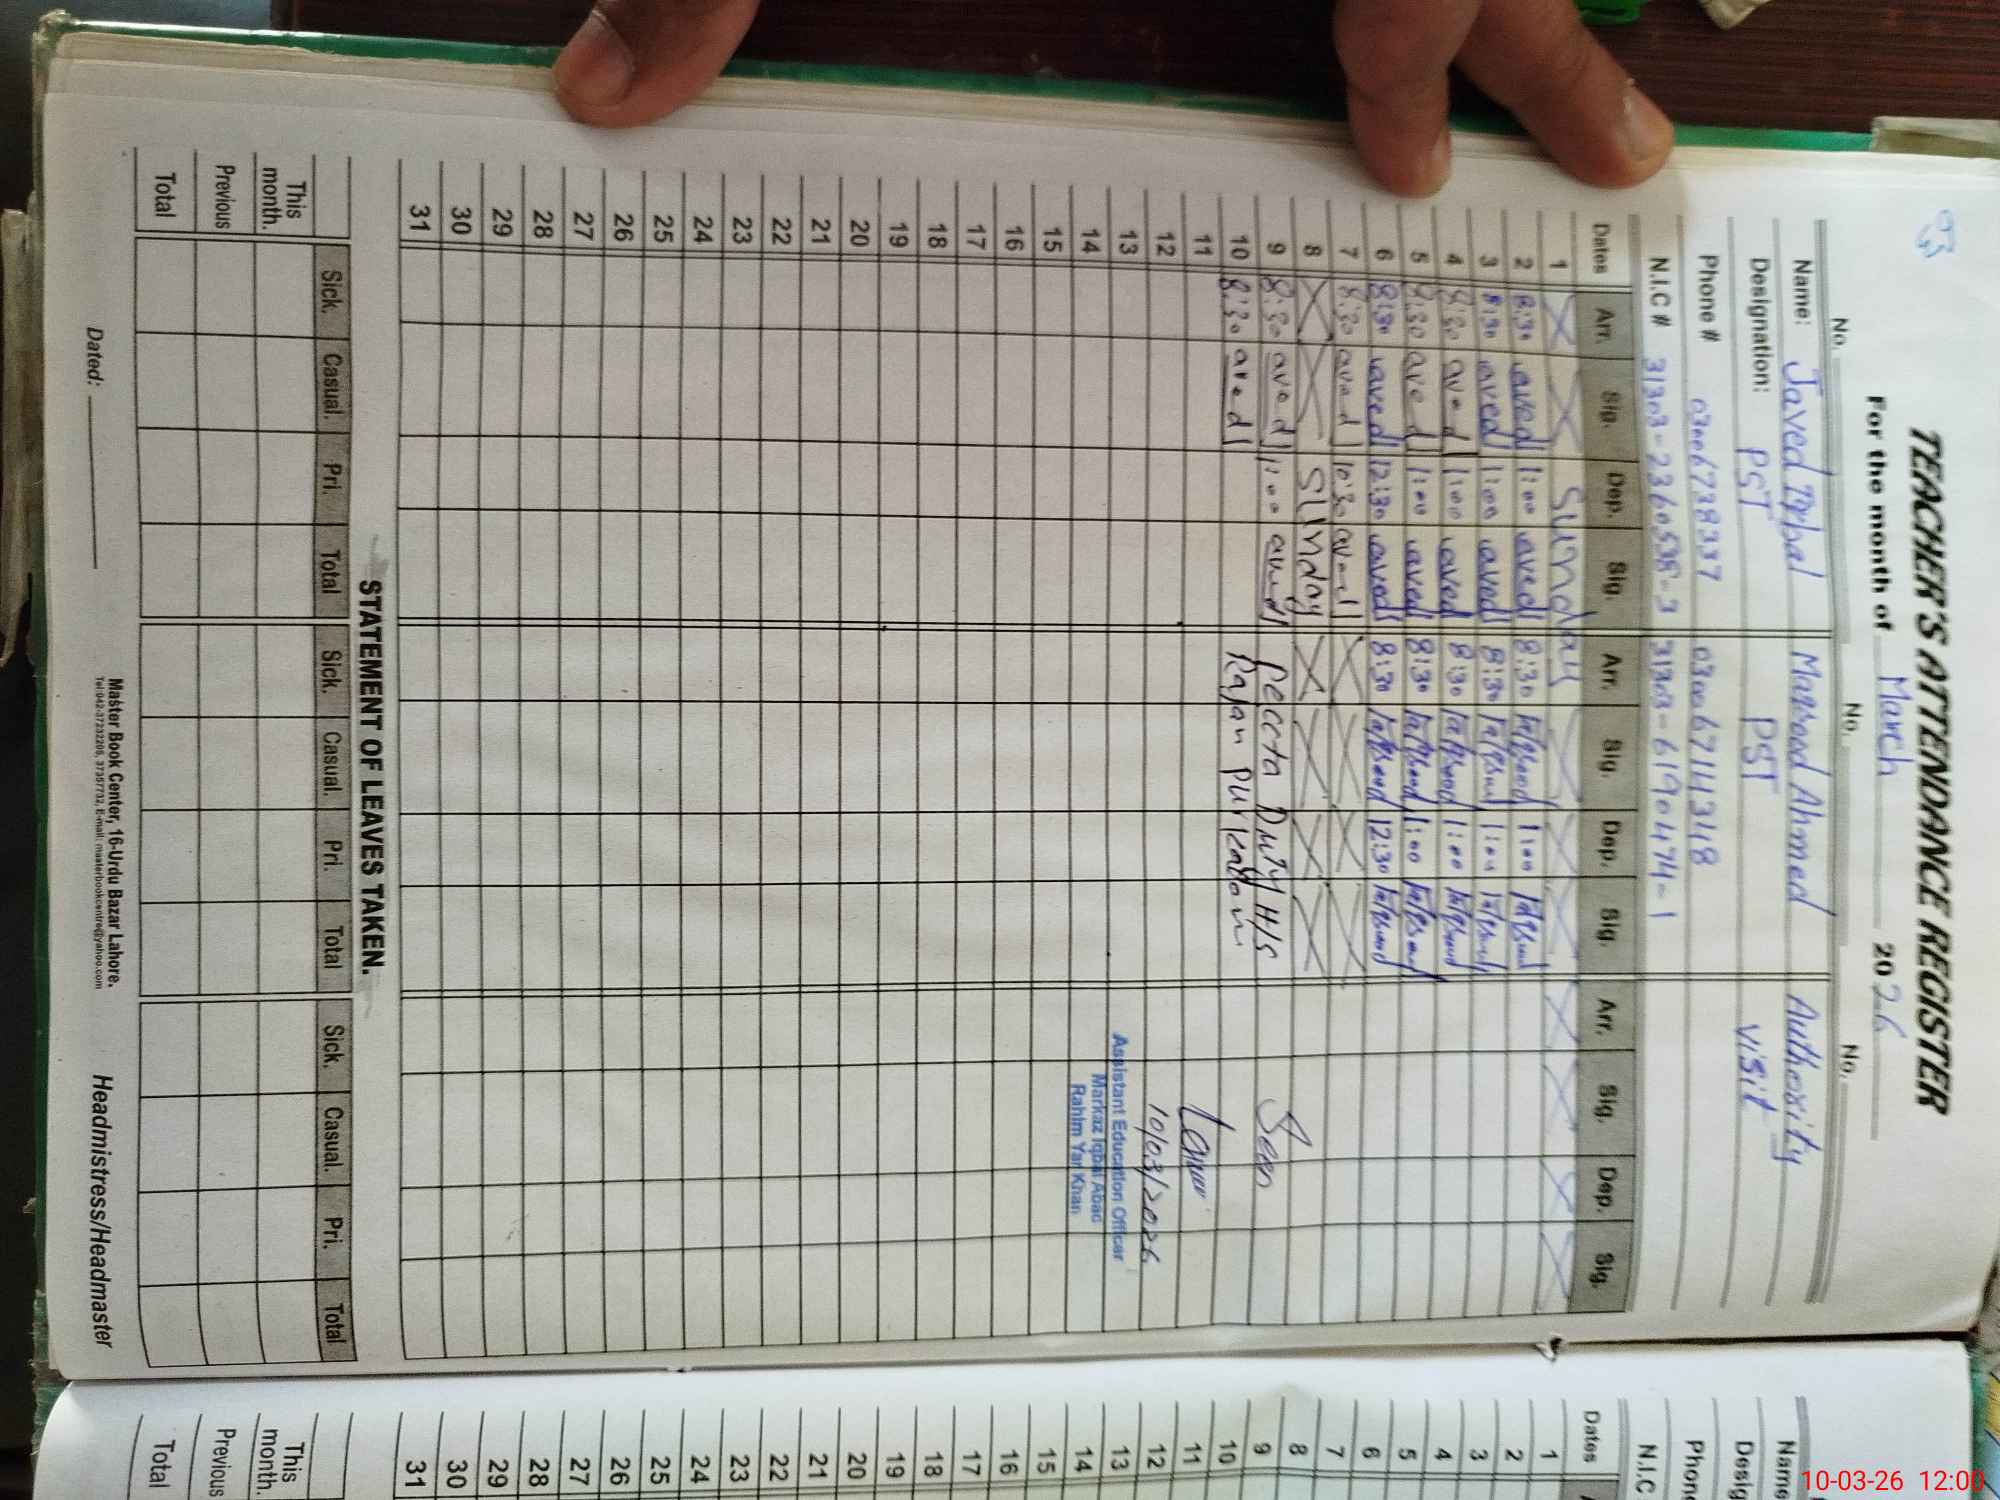 93
TEACHER'S ATTENDANCE REGISTER
For the month of March 2026
No. No. No.
Name: Javed Iqbal Maqsood Ahmed Authority
Designation: PST PST visit
Phone # 03006738337 03006714318
N.I.C # 31303-2360538-3 31303-6190474-1
Dates Arr. Sig. Dep. Sig. Arr. Sig. Dep. Sig. Arr. Sig. Dep. Sig.
1 Sunday
2 8:30 Javed 1:00 Javed 8:30 Maqsood 1:00 Maqsood
3 8:30 Javed 1:00 Javed 8:30 Maqsood 1:00 Maqsood
4 8:30 Javed 1:00 Javed 8:30 Maqsood 1:00 Maqsood
5 8:30 Javed 1:00 Javed 8:30 Maqsood 1:00 Maqsood
6 8:30 Javed 12:30 Javed 8:30 Maqsood 12:30 Maqsood
7 8:30 Javed 10:30 Javed
8 Sunday
9 8:30 Javed 1:00 Javed Peccta Duty H/S Seen
10 8:30 Javed Rajan Pur Kallan
11
12 10/03/2026
13 Assistant Education Officer
14 Markaz Iqbal Abad
Rahim Yar Khan
15
16
17
18
19
20
21
22
23
24
25
26
27
28
29
30
31
STATEMENT OF LEAVES TAKEN.
Sick. Casual. Pri. Total Sick. Casual. Pri. Total Sick. Casual. Pri. Total
This month.
Previous
Total
Dated:
Master Book Center, 16-Urdu Bazar Lahore.
Headmistress/Headmaster
Name
Desig
Phone
N.I.C
Dates
1
2
3
4
5
6
7
8
9
10
11
12
13
14
15
16
17
18
19
20
21
22
23
24
25
26
27
28
29
30
31
This month.
Previous
Total
10-03-26 12:00